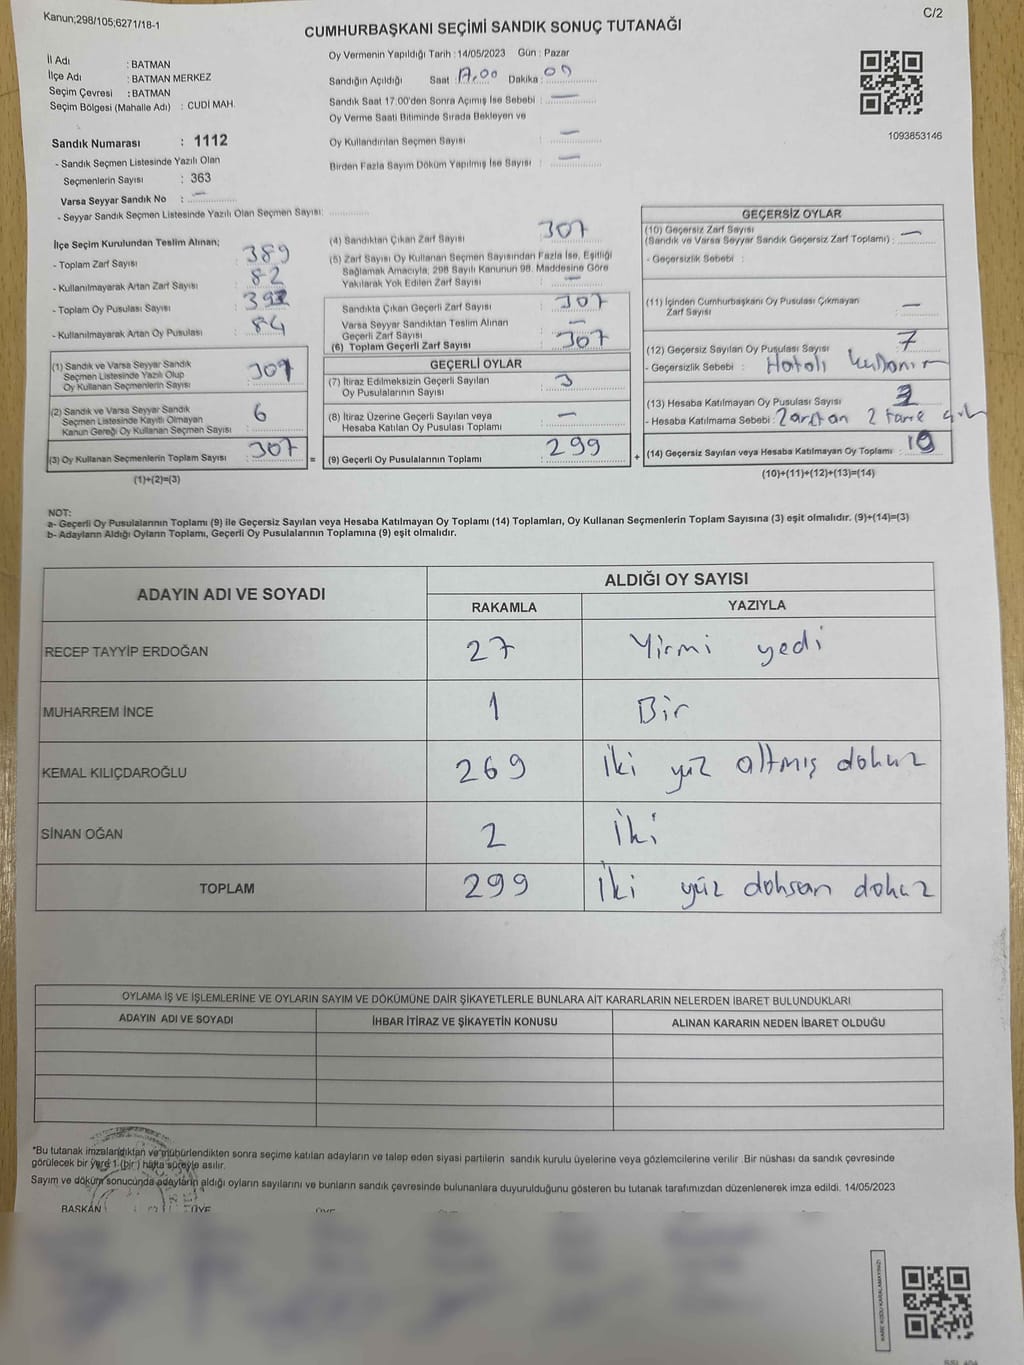 Kanun;298/105;6271/18-1
C/2
CUMHURBAŞKANI SEÇİMİ SANDIK SONUÇ TUTANAĞI
İl Adı : BATMAN
İlçe Adı : BATMAN MERKEZ
Seçim Çevresi : BATMAN
Seçim Bölgesi (Mahalle Adı) : CUDİ MAH.
Oy Vermenin Yapıldığı Tarih : 14/05/2023 Gün : Pazar
Sandığın Açıldığı Saat : 17.00 Dakika : 00
Sandık Saat 17.00'den Sonra Açımış İse Sebebi : —
Oy Verme Saati Bitiminde Sırada Bekleyen ve
Oy Kullandırılan Seçmen Sayısı : —
Birden Fazla Sayım Döküm Yapılmış İse Sayısı : —
1093853146
Sandık Numarası : 1112
- Sandık Seçmen Listesinde Yazılı Olan
Seçmenlerin Sayısı : 363
Varsa Seyyar Sandık No : —
- Seyyar Sandık Seçmen Listesinde Yazılı Olan Seçmen Sayısı:
İlçe Seçim Kurulundan Teslim Alınan;
- Toplam Zarf Sayısı : 389
- Kullanılmayarak Artan Zarf Sayısı : 82
- Toplam Oy Pusulası Sayısı :
- Kullanılmayarak Artan Oy Pusulası : 84
(1) Sandık ve Varsa Seyyar Sandık
Seçmen Listesinde Yazılı Olup
Oy Kullanan Seçmenlerin Sayısı :
(2) Sandık ve Varsa Seyyar Sandık
Seçmen Listesinde Kayıtlı Olmayan
Kanun Gereği Oy Kullanan Seçmen Sayısı : 6
(3) Oy Kullanan Seçmenlerin Toplam Sayısı : 307
(1)+(2)=(3)
=
(4) Sandıktan Çıkan Zarf Sayısı : 307
(5) Zarf Sayısı Oy Kullanan Seçmen Sayısından Fazla İse, Eşitliği
Sağlamak Amacıyla; 298 Sayılı Kanunun 98. Maddesine Göre
Yakılarak Yok Edilen Zarf Sayısı : —
Sandıkta Çıkan Geçerli Zarf Sayısı : 307
Varsa Seyyar Sandıktan Teslim Alınan
Geçerli Zarf Sayısı : —
(6) Toplam Geçerli Zarf Sayısı : 307
GEÇERLİ OYLAR
(7) İtiraz Edilmeksizin Geçerli Sayılan
Oy Pusulalarının Sayısı : 3
(8) İtiraz Üzerine Geçerli Sayılan veya
Hesaba Katılan Oy Pusulası Toplamı : —
(9) Geçerli Oy Pusulalarının Toplamı : 299
+
GEÇERSİZ OYLAR
(10) Geçersiz Zarf Sayısı
(Sandık ve Varsa Seyyar Sandık Geçersiz Zarf Toplamı) : —
- Geçersizlik Sebebi :
(11) İçinden Cumhurbaşkanı Oy Pusulası Çıkmayan
Zarf Sayısı : —
(12) Geçersiz Sayılan Oy Pusulası Sayısı : 7
- Geçersizlik Sebebi : Hatalı kullanım
(13) Hesaba Katılmayan Oy Pusulası Sayısı :
- Hesaba Katılmama Sebebi : Zarftan 2 tane
(14) Geçersiz Sayılan veya Hesaba Katılmayan Oy Toplamı :
(10)+(11)+(12)+(13)=(14)
NOT:
a- Geçerli Oy Pusulalarının Toplamı (9) ile Geçersiz Sayılan veya Hesaba Katılmayan Oy Toplamı (14) Toplamları, Oy Kullanan Seçmenlerin Toplam Sayısına (3) eşit olmalıdır. (9)+(14)=(3)
b- Adayların Aldığı Oyların Toplamı, Geçerli Oy Pusulalarının Toplamına (9) eşit olmalıdır.
ADAYIN ADI VE SOYADI ALDIĞI OY SAYISI
RAKAMLA YAZIYLA
RECEP TAYYİP ERDOĞAN 27 Yirmi yedi
MUHARREM İNCE 1 Bir
KEMAL KILIÇDAROĞLU 269 İki yüz altmış dokuz
SİNAN OĞAN 2 İki
TOPLAM 299 İki yüz doksan dokuz
OYLAMA İŞ VE İŞLEMLERİNE VE OYLARIN SAYIM VE DÖKÜMÜNE DAİR ŞİKAYETLERLE BUNLARA AİT KARARLARIN NELERDEN İBARET BULUNDUKLARI
ADAYIN ADI VE SOYADI İHBAR İTİRAZ VE ŞİKAYETİN KONUSU ALINAN KARARIN NEDEN İBARET OLDUĞU
*Bu tutanak imzalandıktan ve mühürlendikten sonra seçime katılan adayların ve talep eden siyasi partilerin sandık kurulu üyelerine veya gözlemcilerine verilir .Bir nüshası da sandık çevresinde
görülecek bir yere 1 (bir) hafta süreyle asılır.
Sayım ve döküm sonucunda adayların aldığı oyların sayılarını ve bunların sandık çevresinde bulunanlara duyurulduğunu gösteren bu tutanak tarafımızdan düzenlenerek imza edildi. 14/05/2023
BAŞKAN ÜYE ÜYE